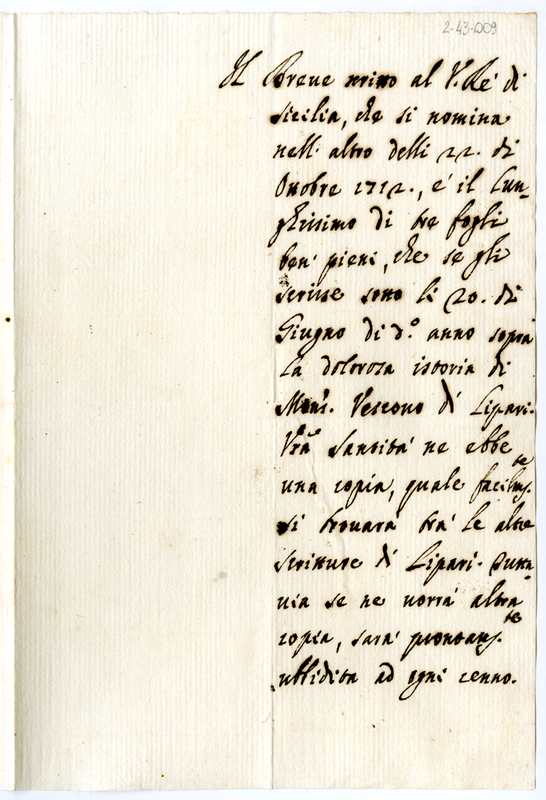 2-43-D09
Il Breve scritto al V. Re' di
Sicilia, che si nomina
nell' altro delli 22. di
Ottobre 1712., e' il lun-
ghissimo di tre fogli
ben' pieni, che se gli
scrisse sotto li 20. di
Giugno di d.º anno sopra
la dolorosa istoria di
Mons. Vescovo di Lipari.
Vrã Santita' ne ebbe
una copia, quale facilm.te
si trovara' tra' le altre
scritture di Lipari. Tutta
via se ne vorra' altra
copia, sara' prontam.te
ubbidita ad ogni cenno.